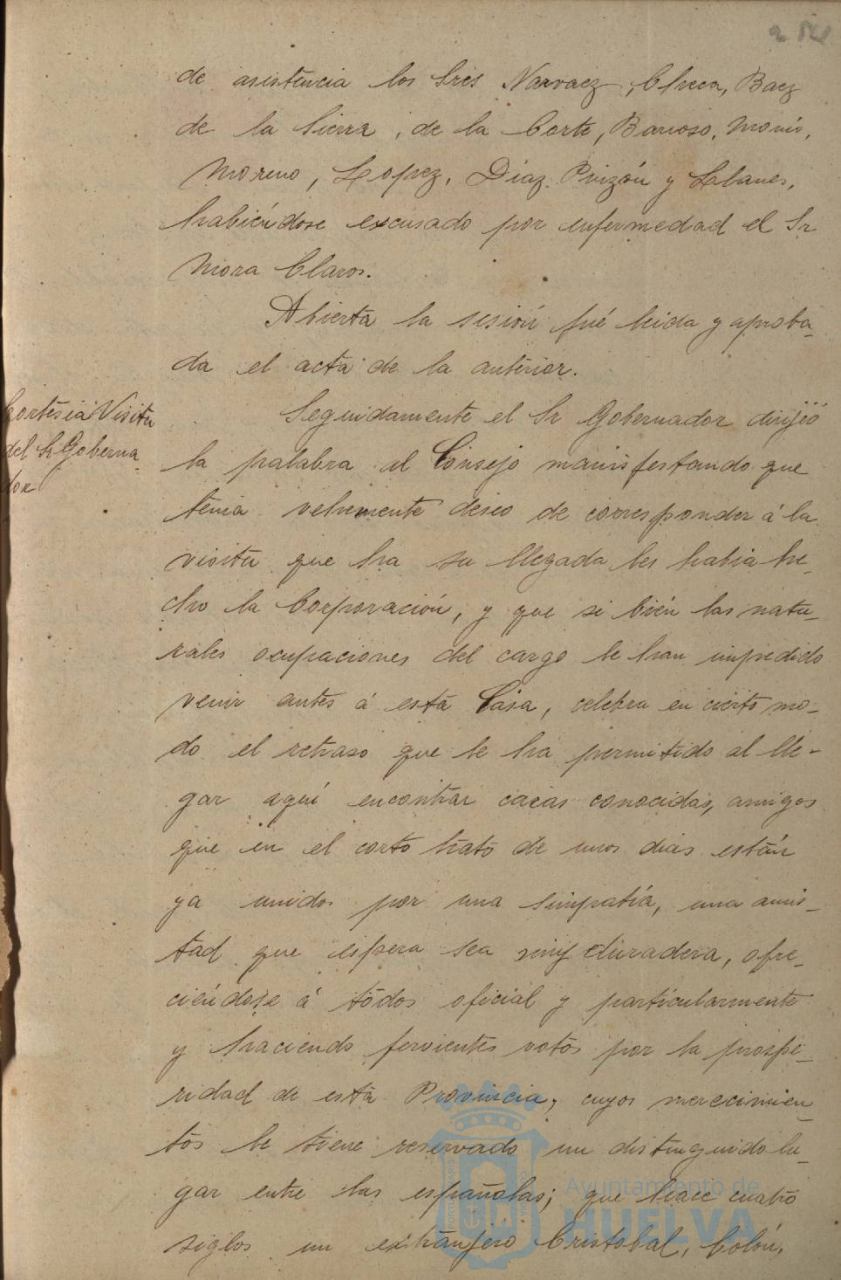 de asistencia los Sres Narvaez, Checa, Baez
de la Sierra, de la Corte, Barroso, Monís,
Moreno, Lopez, Díaz, Pinzón y Llanes,
habiéndose excusado por enfermedad el Sr
Mora Claros.
Abierta la sesión fué leida y aproba-
da el acta de la anterior.
Cortesia Visita
del Sr Goberna
dor
Seguidamente el Sr Gobernador dirijió
la palabra al Consejo manifestando que
tenia vehemente deseo de corresponder á la
visita que ha su llegada les habia he-
cho la Corporación, y que si bién las natu-
rales ocupaciones del cargo le han impedido
venir antes á esta Casa, celebra en cierto mo-
do el retraso que le ha permitido al lle-
gar aquí encontrar caras conocidas, amigos
que en el corto trato de unos dias están
ya unidos por una simpatía, una amis-
tad que espera sea muy duradera, ofre-
ciéndose á todos oficial y particularmente
y haciendo fervientes votos por la prospe-
ridad de esta Provincia, cuyos merecimien-
tos le tiene reservado un distinguido lu-
gar entre las españolas; que hace cuatro
siglos un extranjero Cristobal, Colón,
Ayuntamiento de
HUELVA